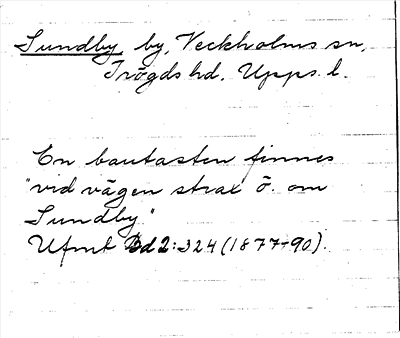 Sundby by, Veckholms sn,
Trögds hd. Upps. l.
En bautasten finnes
"vid vägen strax ö. om
Sundby"
Ufmt Bd 2:324 (1877-90).